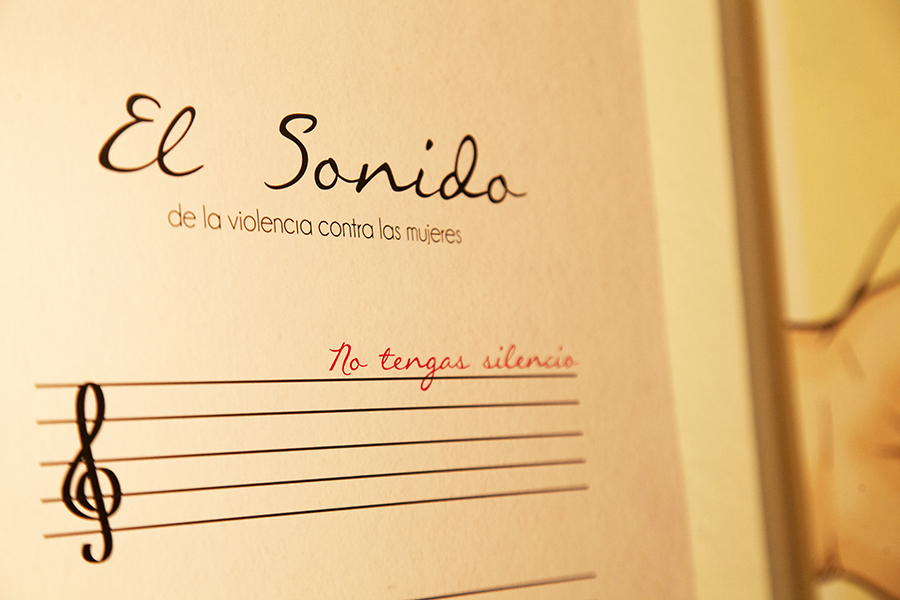 El Sonido
de la violencia contra las mujeres
No tengas silencio